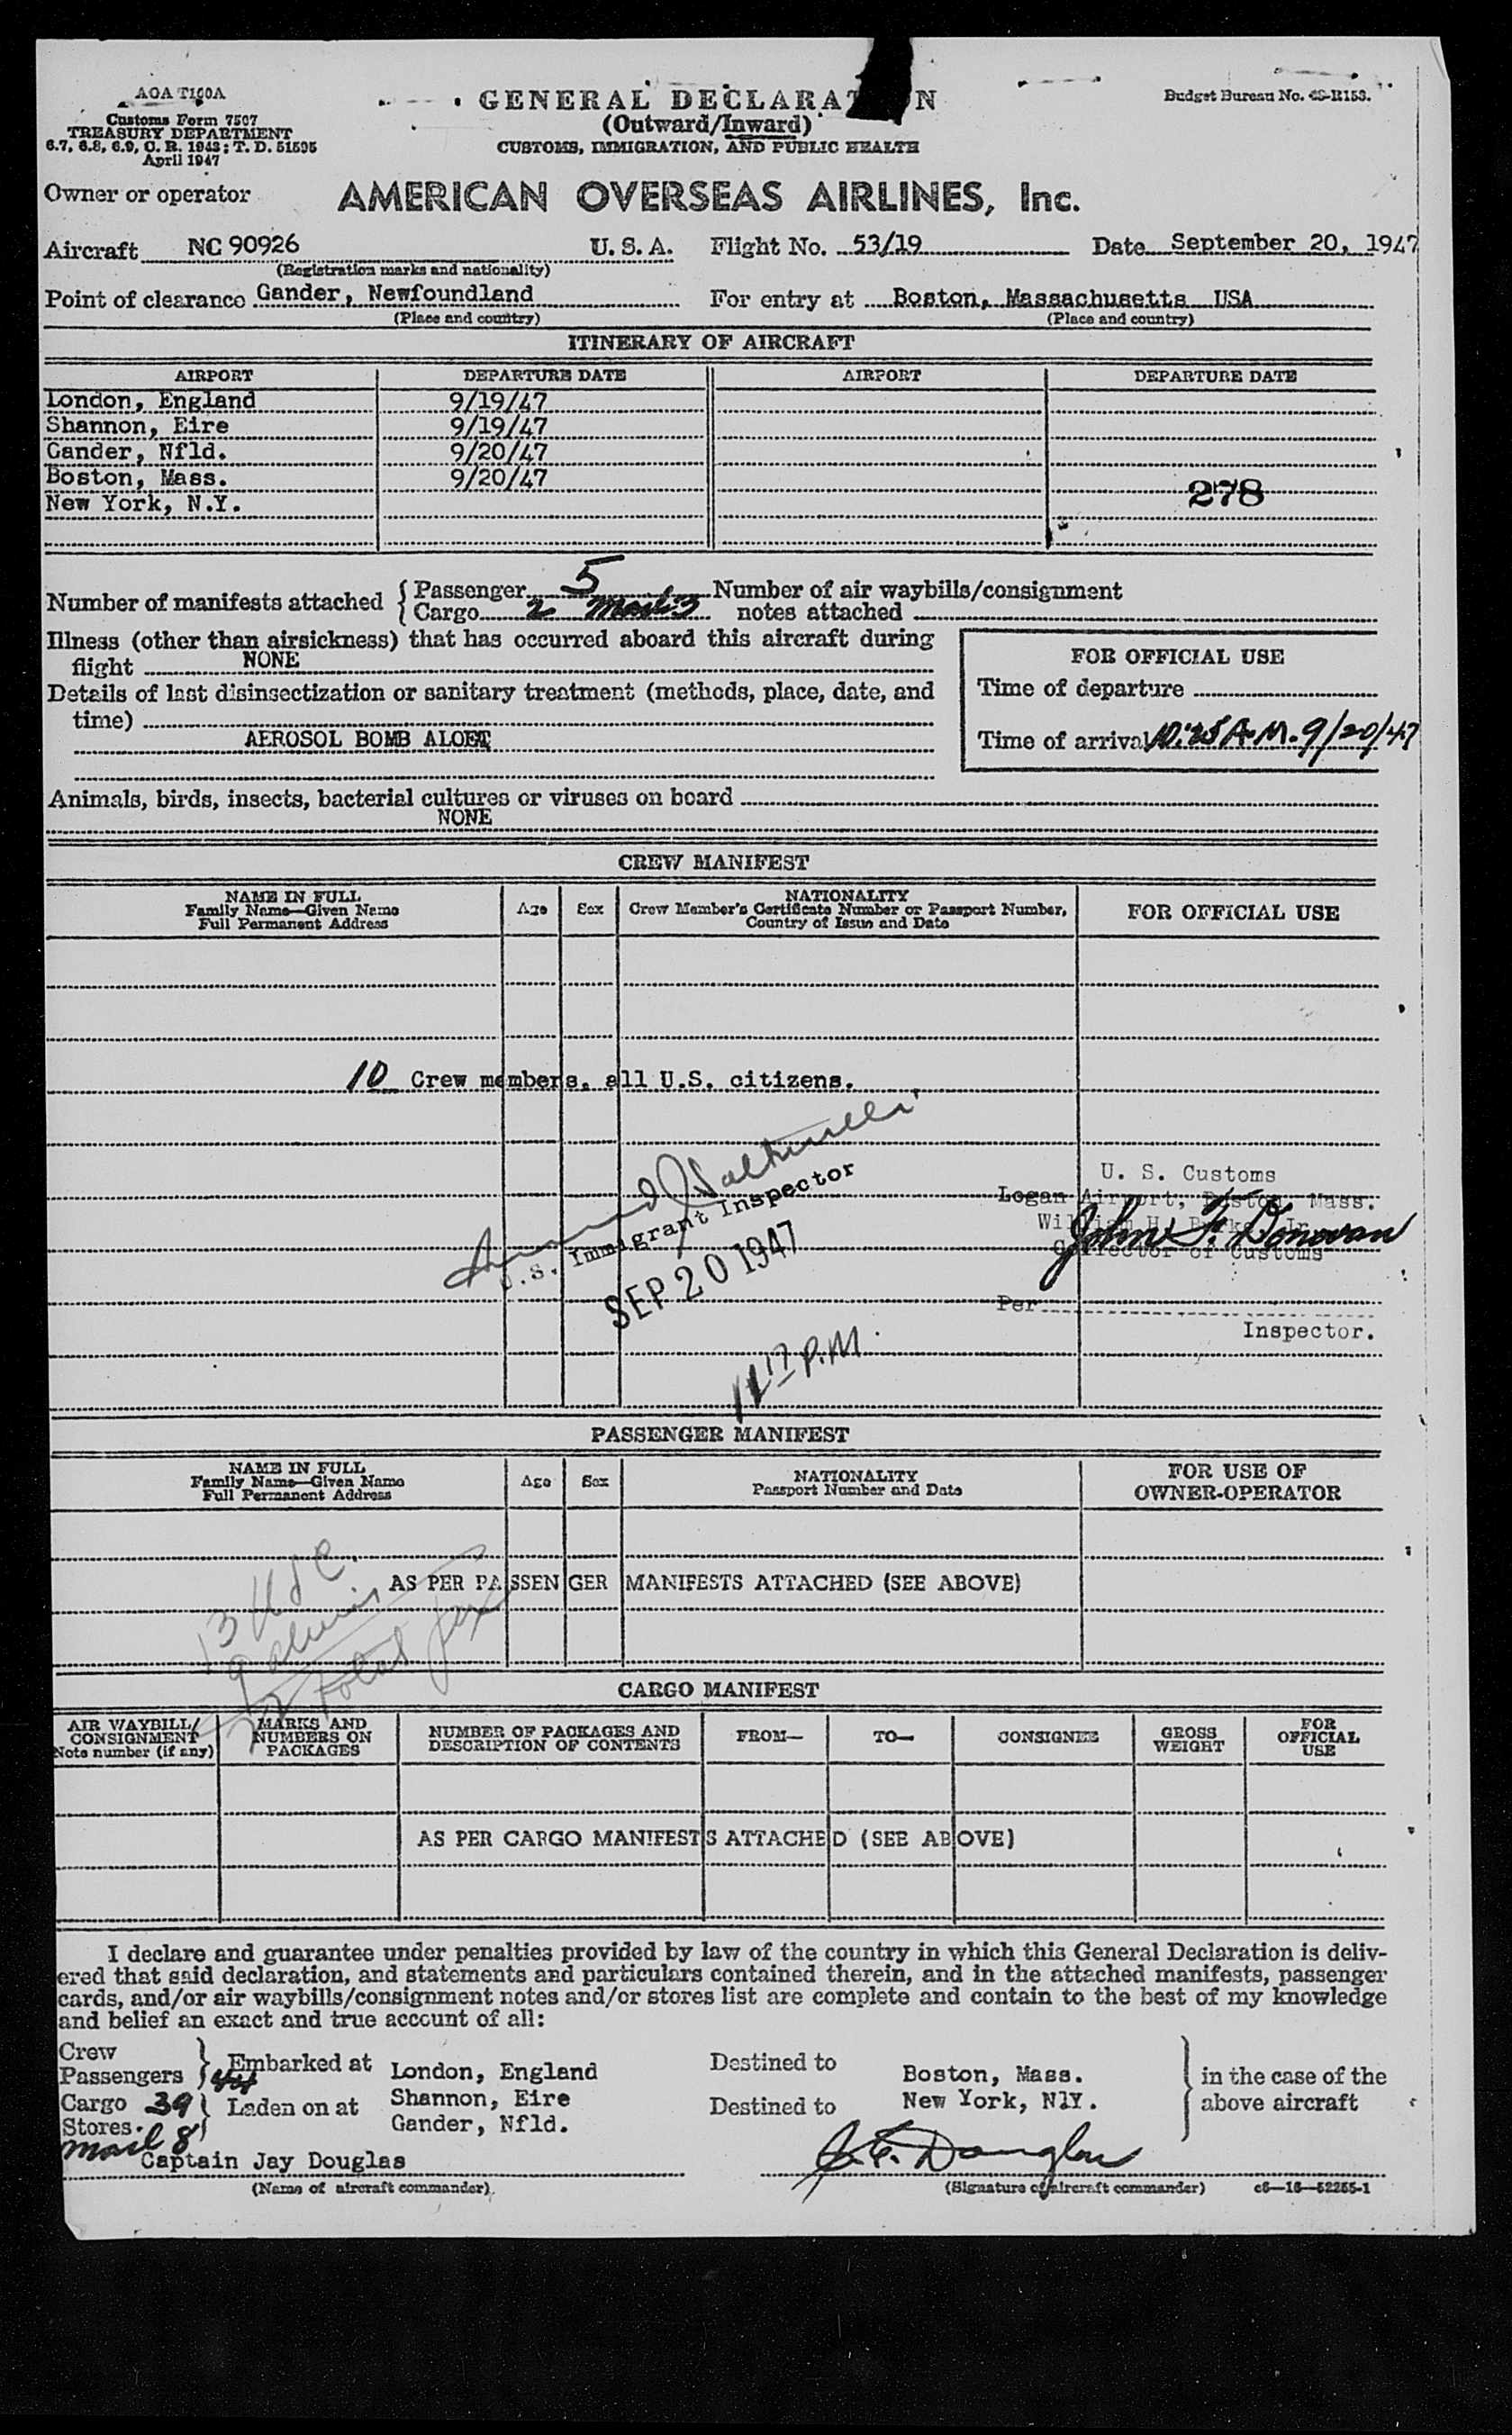 AOA T100A
Customs Form 7507
TREASURY DEPARTMENT
6.7, 6.8, 6.9, C. R. 1943; T. D. 51595
April 1947
GENERAL DECLARA N
(Outward/Inward)
CUSTOMS, IMMIGRATION, AND PUBLIC HEALTH
Budget Bureau No. 48-R153.
Owner or operator AMERICAN OVERSEAS AIRLINES, Inc.
Aircraft NC 90926 U. S. A. Flight No. 53/19 Date September 20, 1947
(Registration marks and nationality)
Point of clearance Gander, Newfoundland For entry at Boston, Massachusetts USA
(Place and country) (Place and country)
ITINERARY OF AIRCRAFT
AIRPORT DEPARTURE DATE AIRPORT DEPARTURE DATE
London, England 9/19/47
Shannon, Eire 9/19/47
Gander, Nfld. 9/20/47
Boston, Mass. 9/20/47
278
New York, N.Y.
Number of manifests attached { Passenger 5 Number of air waybills/consignment
Cargo 2 Mail 3 notes attached
Illness (other than airsickness) that has occurred aboard this aircraft during
flight NONE
Details of last disinsectization or sanitary treatment (methods, place, date, and
time)
AEROSOL BOMB ALOFT
FOR OFFICIAL USE
Time of departure
Time of arrival A.M. 9/20/47
Animals, birds, insects, bacterial cultures or viruses on board
NONE
CREW MANIFEST
NAME IN FULL
Family Name—Given Name
Full Permanent Address
Age Sex
NATIONALITY
Crew Member's Certificate Number or Passport Number,
Country of Issue and Date
FOR OFFICIAL USE
10 Crew members, all U.S. citizens.
U.S. Immigrant Inspector
SEP 20 1947
P.M.
U. S. Customs
Logan Airport, Boston, Mass.
John F. Donovan
Collector of Customs
Per
Inspector.
PASSENGER MANIFEST
NAME IN FULL
Family Name—Given Name
Full Permanent Address
Age Sex
NATIONALITY
Passport Number and Date
FOR USE OF
OWNER-OPERATOR
13 USC
9 aliens
22 total pax
AS PER PASSENGER MANIFESTS ATTACHED (SEE ABOVE)
CARGO MANIFEST
AIR WAYBILL/
CONSIGNMENT
Note number (if any)
MARKS AND
NUMBERS ON
PACKAGES
NUMBER OF PACKAGES AND
DESCRIPTION OF CONTENTS
FROM— TO— CONSIGNEE
GROSS
WEIGHT
FOR
OFFICIAL
USE
AS PER CARGO MANIFESTS ATTACHED (SEE ABOVE)
I declare and guarantee under penalties provided by law of the country in which this General Declaration is deliv-
ered that said declaration, and statements and particulars contained therein, and in the attached manifests, passenger
cards, and/or air waybills/consignment notes and/or stores list are complete and contain to the best of my knowledge
and belief an exact and true account of all:
Crew
Passengers } Embarked at London, England Destined to Boston, Mass. in the case of the
Cargo 39 } Laden on at Shannon, Eire Destined to New York, N1Y. above aircraft
Stores. Gander, Nfld.
Mail 8
Captain Jay Douglas J. F. Douglas
(Name of aircraft commander) (Signature of aircraft commander) c6—16—52255-1